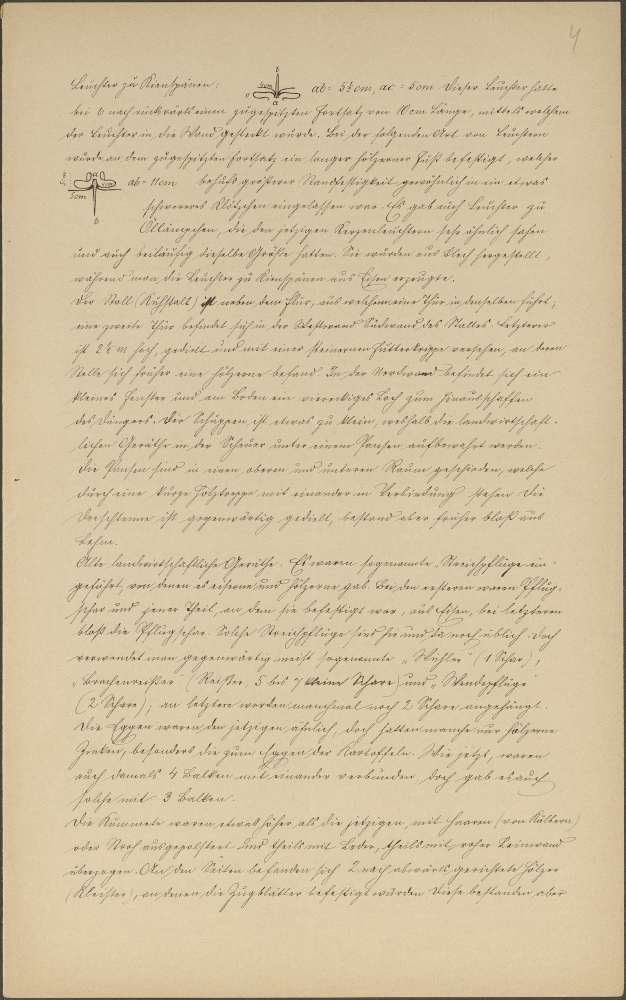 4
Leuchter zu Kienspänen: ab = 5½ cm, ac = 5 cm Dieser Leuchter hatte
bei b nach rückwärts einen zugespitzten Fortsatz von 10 cm Länge, mittels welchem
der Leuchter in die Wand gesteckt wurde. Bei der folgenden Art von Leuchtern
wurde an dem zugespitzten Fortsatz ein langer hölzerner Fuß befestigt, welcher
ab = 11 cm behufs größerer Standfestigkeit gewöhnlich in ein etwas
5 cm
schwereres Klötzchen eingelassen war. Es gab auch Leuchter zu
Öllämpchen, die den jetzigen Kerzenleuchtern sehr ähnlich sahen
und auch beiläufig dieselbe Größe hatten. Sie wurden aus Blech hergestellt,
während man die Leuchter zu Kienspänen aus Eisen erzeugte.
Der Stall (Kuhstall) ist neben dem Flur, aus welchem eine Thür in denselben führt;
eine zweite Thür befindet sich in der Südwand des Stalles. Letzterer
ist 2½ m hoch, gedielt und mit einer steinernen Futterkrippe versehen, an deren
Stelle sich früher eine hölzerne befand. In der Nordwand befindet sich ein
kleines Fenster und am Boden ein viereckiges Loch zum Hinausschaffen
des Düngers. Der Schuppen ist etwas zu klein, weshalb die landwirtschaft-
lichen Geräthe in der Scheuer unter einem Pansen aufbewahrt werden.
Die Pansen sind in einen oberen und unteren Raum geschieden, welche
durch eine kurze Holztreppe mit einander in Verbindung stehen. Die
Dreschtenne ist gegenwärtig gedielt, bestand aber früher bloß aus
Lehm.
Alte landwirtschaftliche Geräthe. Es waren sogenannte Streichpflüge ein-
geführt, von denen es eiserne und hölzerne gab. Bei den ersteren waren Pflug-
schar und jener Theil, an dem sie befestigt war, aus Eisen, bei letzteren
bloß die Pflugschar. Solche Streichpflüge sind hie und da noch üblich. Doch
verwendet man gegenwärtig meist sogenannte „Wühler" (1 Schar),
„Brachenreißer" (Reißer, 5 bis 7 kleine Schare) und „Wendepflüge"
(2 Schare); an letztere werden manchmal noch 2 Schare angehängt.
Die Eggen waren den jetzigen ähnlich, doch hatten manche nur hölzerne
Zinken, besonders die zum Eggen der Kartoffeln. Wie jetzt, waren
auch damals 4 Balken mit einander verbunden, doch gab es auch
solche mit 3 Balken.
Die Kummete waren etwas höher als die jetzigen, mit Haaren (von Kälbern)
oder Stroh ausgepolstert und theils mit Leder, theils mit roher Leinwand
überzogen. An den Seiten befanden sich 2 nach abwärts gerichtete Hölzer
an denen die Zugblätter befestigt wurden. Diese bestanden aber